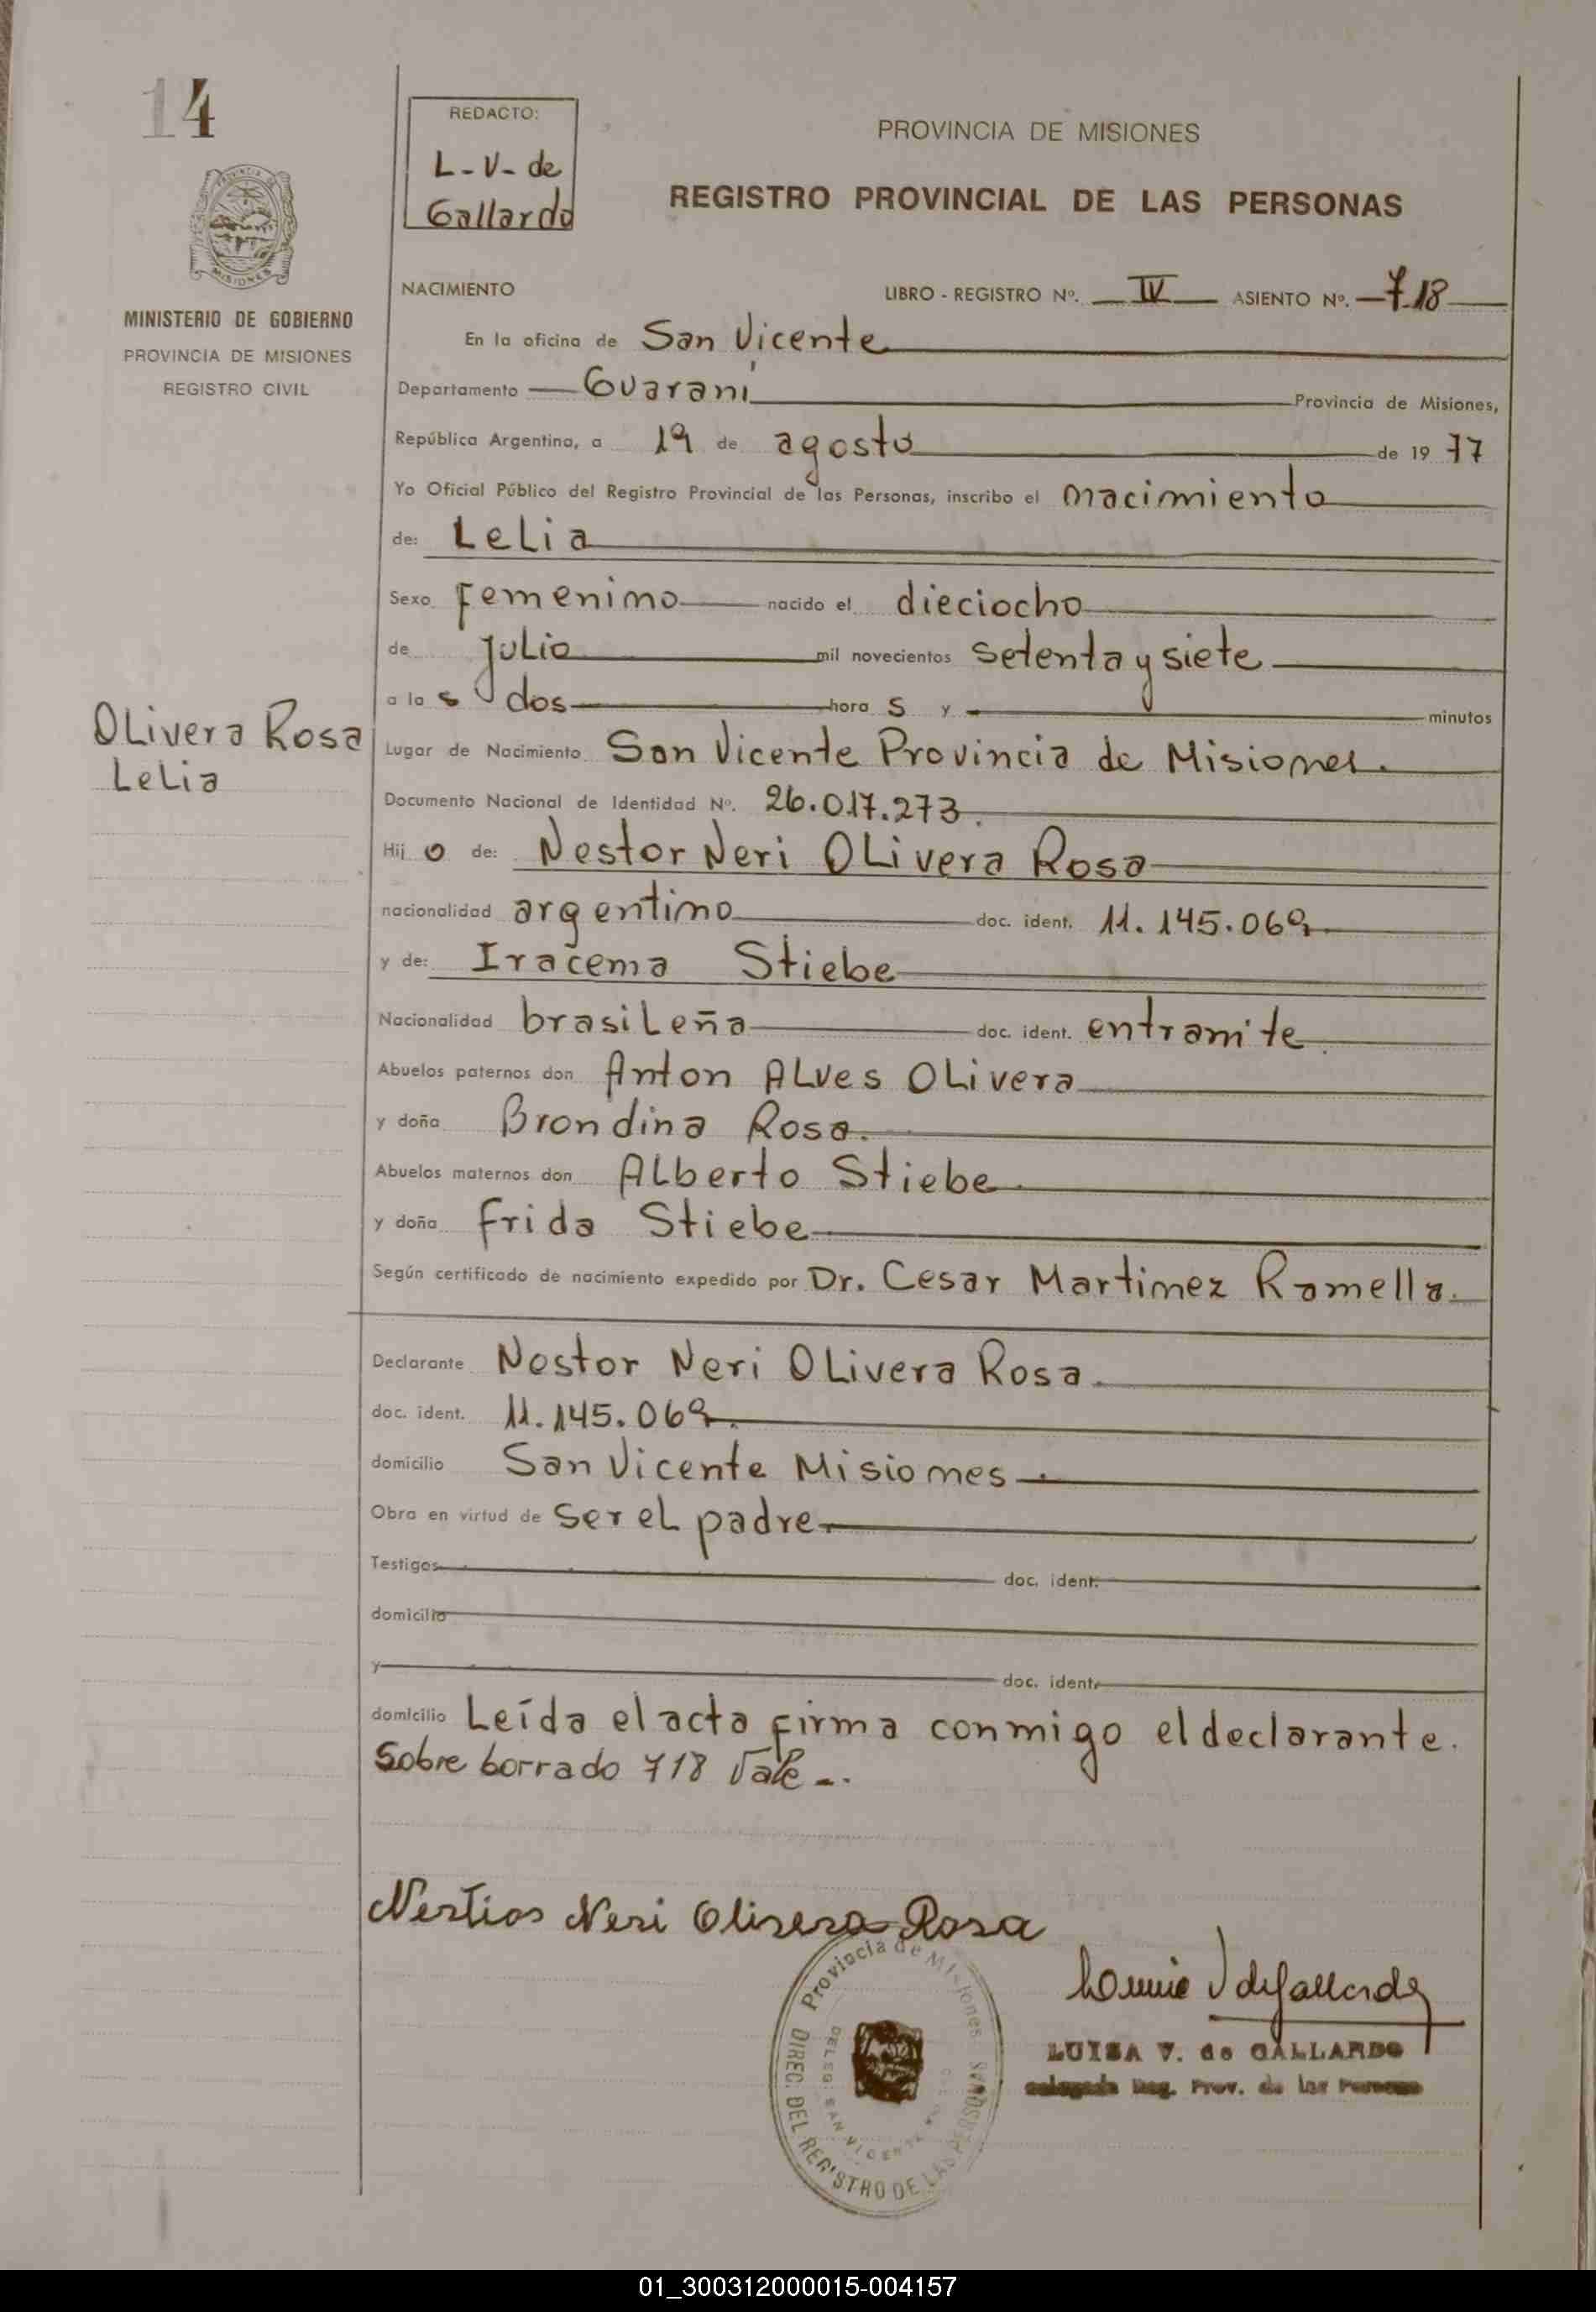 14
REDACTO:
L-V-de
Gallardo
PROVINCIA DE MISIONES
REGISTRO PROVINCIAL DE LAS PERSONAS
MINISTERIO DE GOBIERNO
PROVINCIA DE MISIONES
REGISTRO CIVIL
NACIMIENTO LIBRO - REGISTRO Nº. IV ASIENTO Nº. 718
En la oficina de San Vicente
Departamento Guaraní Provincia de Misiones,
República Argentina, a 19 de agosto de 1977
Yo Oficial Público del Registro Provincial de las Personas, inscribo el nacimiento
de: Lelia
Sexo femenino nacido el dieciocho
de julio mil novecientos setenta y siete
a las dos horas y - minutos
Olivera Rosa
Lelia
Lugar de Nacimiento San Vicente Provincia de Misiones.
Documento Nacional de Identidad Nº. 26.017.273.
Hijo de: Nestor Neri Olivera Rosa
nacionalidad argentino doc. ident. 11.145.069
y de: Iracema Stiebe
Nacionalidad brasileña doc. ident. entramite.
Abuelos paternos don Anton Alves Olivera
y doña Brondina Rosa.
Abuelos maternos don Alberto Stiebe
y doña Frida Stiebe
Según certificado de nacimiento expedido por Dr. Cesar Martinez Ramella.
Declarante Nestor Neri Olivera Rosa.
doc. ident. 11.145.069.
domicilio San Vicente Misiones.
Obra en virtud de ser el padre.
Testigos doc. ident.
domicilio
y doc. ident.
domicilio Leída el acta firma conmigo el declarante.
Sobre borrado 718 Vale-.
Neri Olivera Rosa
Provincia de Misiones
DIREC. DEL REGISTRO DE LAS PERSONAS
DELEG. SAN VICENTE
LUISA V. de GALLARDO
Delegada Reg. Prov. de las Personas
01_300312000015-004157